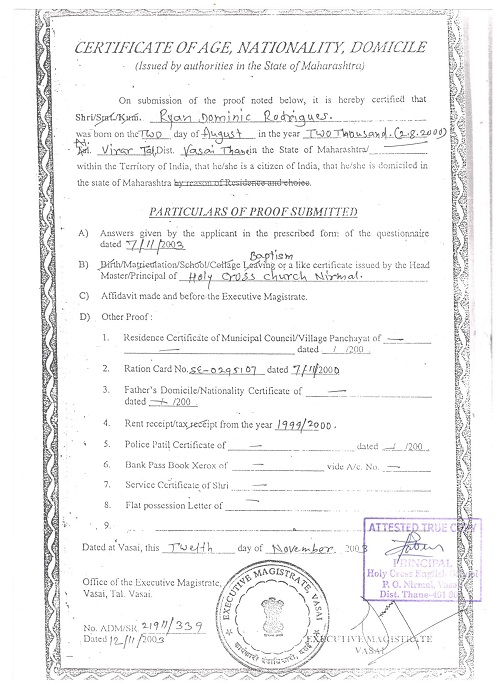 CERTIFICATE OF AGE, NATIONALITY, DOMICILE
(Issued by authorities in the State of Maharashtra)
On submission of the proof noted below, it is hereby certified that
Shri/Smt./Kum. Ryan Dominic Rodrigues.
was born on the TWO day of August in the year TWO Thousand. (2-8-2000)
At. Virar Tal, Dist. Vasai Thane in the State of Maharashtra/
within the Territory of India, that he/she is a citizen of India, that he/she is domiciled in
the state of Maharashtra by reason of Residence and choice.
PARTICULARS OF PROOF SUBMITTED
A) Answers given by the applicant in the prescribed form of the questionnaire
dated 7/11/2003
Baptism
B) Birth/Matriculation/School/Collage Leaving or a like certificate issued by the Head
Master/Principal of Holy Cross church Nirmal.
C) Affidavit made and before the Executive Magistrate.
D) Other Proof :
1. Residence Certificate of Municipal Council/Village Panchayat of —
— dated / /200 .
2. Ration Card No. SE-0295107 dated 7/11/2000
3. Father's Domicile/Nationality Certificate of —
dated — / — /200 .
4. Rent receipt/tax receipt from the year 1999/2000.
5. Police Patil Certificate of — dated — / /200 .
6. Bank Pass Book Xerox of — vide A/c. No. —
7. Service Certificate of Shri —
8. Flat possession Letter of —
9.
ATTESTED TRUE COPY
PRINCIPAL
Holy Cross English School
P. O. Nirmal, Vasai
Dist. Thane-401
Dated at Vasai, this Twelfth day of November 2003
Office of the Executive Magistrate,
Vasai, Tal. Vasai.
EXECUTIVE MAGISTRATE, VASAI
कार्यकारी दंडाधिकारी, वसई
No. ADM/SR 21911/339
Dated 12/11/2003
EXECUTIVE MAGISTRATE
VASAI